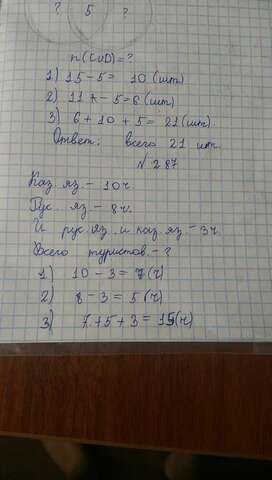 ? 5 ?
n(CUD)=?
1) 15-5= 10 (шт)
2) 11 - 5=6 (шт)
3) 6+10+5=21(шт).
Ответ: всего 21 шт.
№287
Каз. яз. - 10ч.
Рус. яз - 8ч.
И рус.яз. и каз.яз. - 3ч.
Всего туристов - ?
1) 10-3=7(ч)
2) 8-3=5(ч)
3) 7+5+3=15(ч)